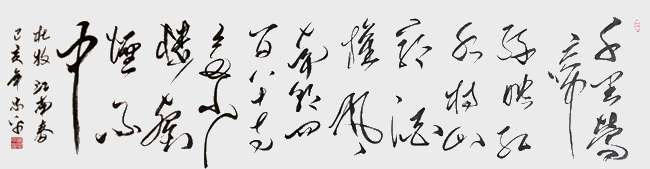 千里鶯
啼
綠映紅
水村山
郭酒
旗風
南朝四
百八十寺
多少
樓臺
煙雨
中
杜牧江南春
己亥年